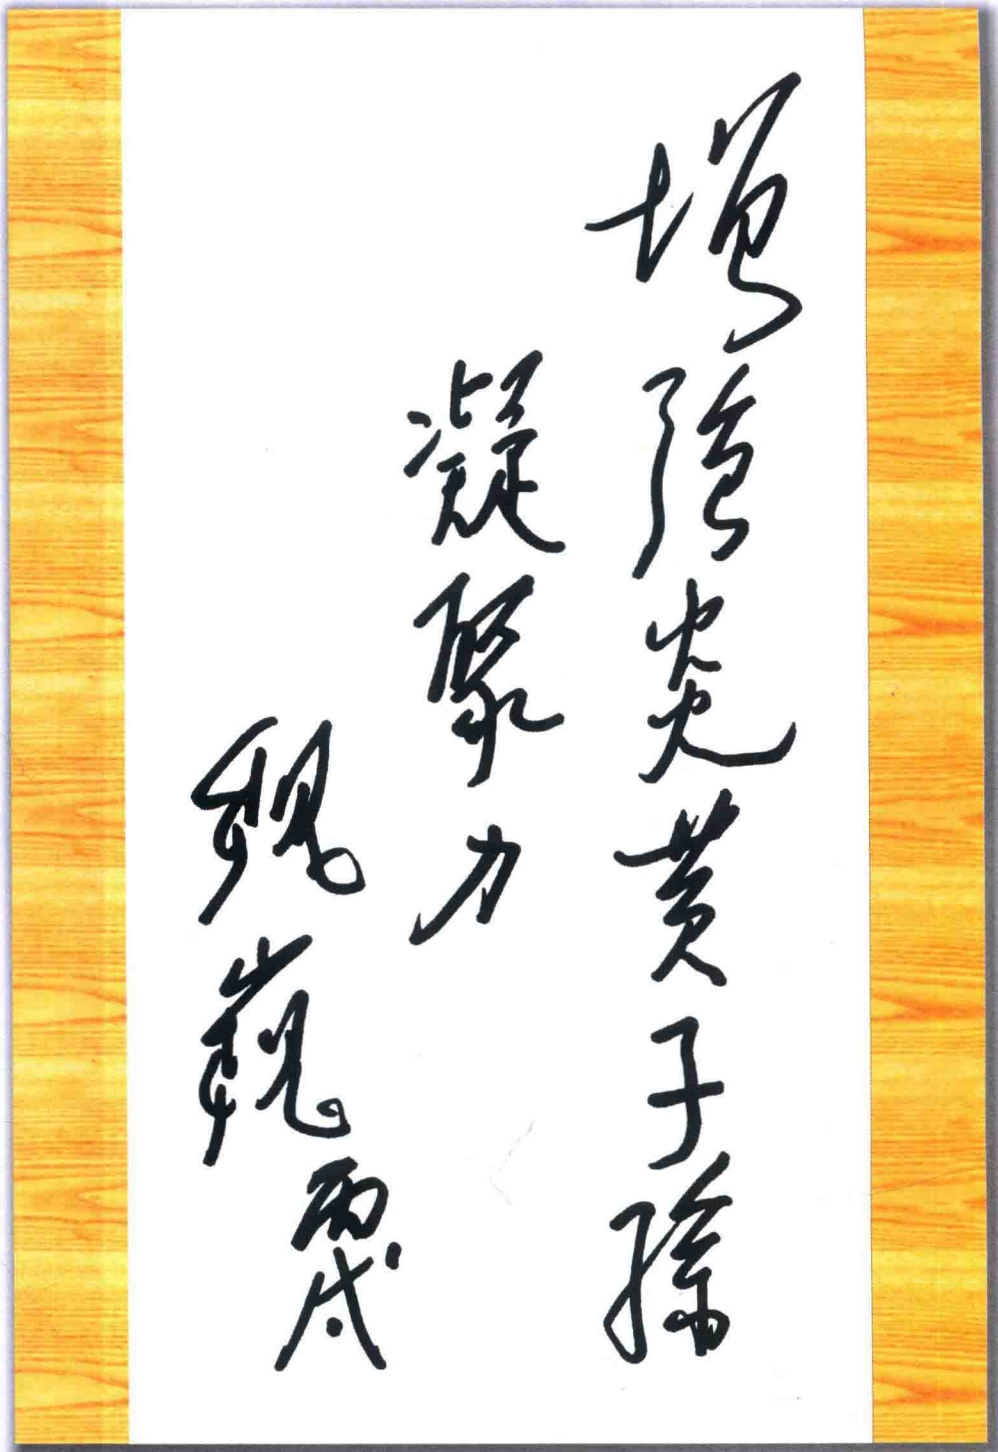 增强炎黄子孫
凝聚力
魏巍 丙戌